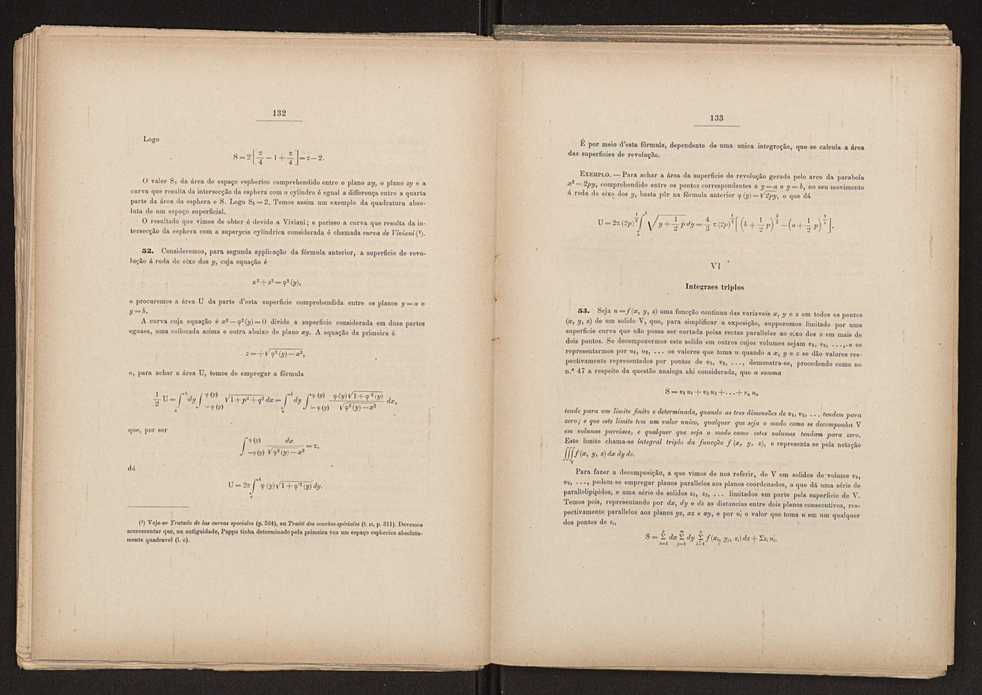 132
Logo
S = 2 [π/4 − 1 + π/4] = π − 2.
O valor S₁ da área do espaço espherico comprehendido entre o plano xy, o plano zy e a
curva que resulta da intersecção da esphera com o cylindro é egual a differença entre a quarta
parte da área da esphera e S. Logo S₁ = 2. Temos assim um exemplo da quadratura abso-
luta de um espaço superficial.
O resultado que vimos de obter é devido a Viviani; e porisso a curva que resulta da in-
tersecção da esphera com a superycie cylindrica considerada é chamada curva de Viviani (¹).
52. Consideremos, para segunda applicação da fórmula anterior, a superficie de revo-
lução á roda do eixo dos y, cuja equação é
x² + z² = φ² (y),
e procuremos a área U da parte d'esta superficie comprehendida entre os planos y = a e
y = b.
A curva cuja equação é x² − φ² (y) = 0 divide a superficie considerada em duas partes
eguaes, uma collocada acima e outra abaixo do plano xy. A equação da primeira é
z = + √φ² (y) − x²,
e, para achar a área U, temos de empregar a fórmula
½ U = ∫ₐᵇ dy ∫₋φ(y)^φ(y) √1 + p² + q² dx = ∫ₐᵇ dy ∫₋φ(y)^φ(y) φ(y) √1 + φ'²(y) / √φ²(y) − x² dx,
que, por ser
∫₋φ(y)^φ(y) dx / √φ²(y) − x² = π,
dá
U = 2π ∫ₐᵇ φ (y) √1 + φ'² (y) dy.
(¹) Veja-se Tratado de las curvas speciales (p. 504), ou Traité des courbes spéciales (t. II, p. 311). Devemos
accrescentar que, na antiguidade, Pappo tinha determinado pela primeira vez um espaço espherico absoluta-
mente quadravel (l. c).
133
É por meio d'esta fórmula, dependente de uma unica integração, que se calcula a área
das superficies de revolução.
EXEMPLO. — Para achar a área da superficie de revolução gerada pelo arco da parabola
x² = 2py, comprehendido entre os pontos correspondentes a y = a e y = b, no seu movimento
á roda do eixo dos y, basta pôr na fórmula anterior φ (y) = √2py, o que dá
U = 2π (2p)^½ ∫ₐᵇ √y + ½ p dy = 4/3 π (2p)^½ [(b + ½ p)^3/2 − (a + ½ p)^3/2],
VI
Integraes triplos
53. Seja u = f (x, y, z) uma funcção continua das variaveis x, y e z em todos os pontos
(x, y, z) de um solido V, que, para simplificar a exposição, supporemos limitado por uma
superficie curva que não possa ser cortada pelas rectas parallelas ao eixo dos z em mais de
dois pontos. Se decompozermos este solido em outros cujos volumes sejam v₁, v₂, ..., e se
representarmos por u₁, u₂, ... os valores que toma u quando a x, y e z se dão valores res-
pectivamente representados por pontos de v₁, v₂, ..., demonstra-se, procedendo como no
n.º 47 a respeito da questão analoga ahi considerada, que a somma
S = v₁ u₁ + v₂ u₂ + ... + vₙ uₙ
tende para um limite finito e determinado, quando as tres dimensões de v₁, v₂, ... tendem para
zero; e que este limite tem um valor unico, qualquer que seja o modo como se decomponha V
em volumes parciaes, e qualquer que seja o modo como estes volumes tendam para zero.
Este limite chama-se integral triplo da funcção f (x, y, z), e representa-se pela notação
∫∫∫ᵥ f (x, y, z) dx dy dz.
Para fazer a decomposição, a que vimos de nos referir, de V em solidos de volume v₁,
v₂, ..., podem-se empregar planos parallelos aos planos coordenados, o que dá uma série de
parallelipipedos, e uma série de solidos ε₁, ε₂, ... limitados em parte pela superficie de V.
Temos pois, representando por dx, dy e dz as distancias entre dois planos consecutivos, res-
pectivamente parallelos aos planos yz, xz e xy, e por u'ᵢ o valor que toma u em um qualquer
dos pontos de εᵢ,